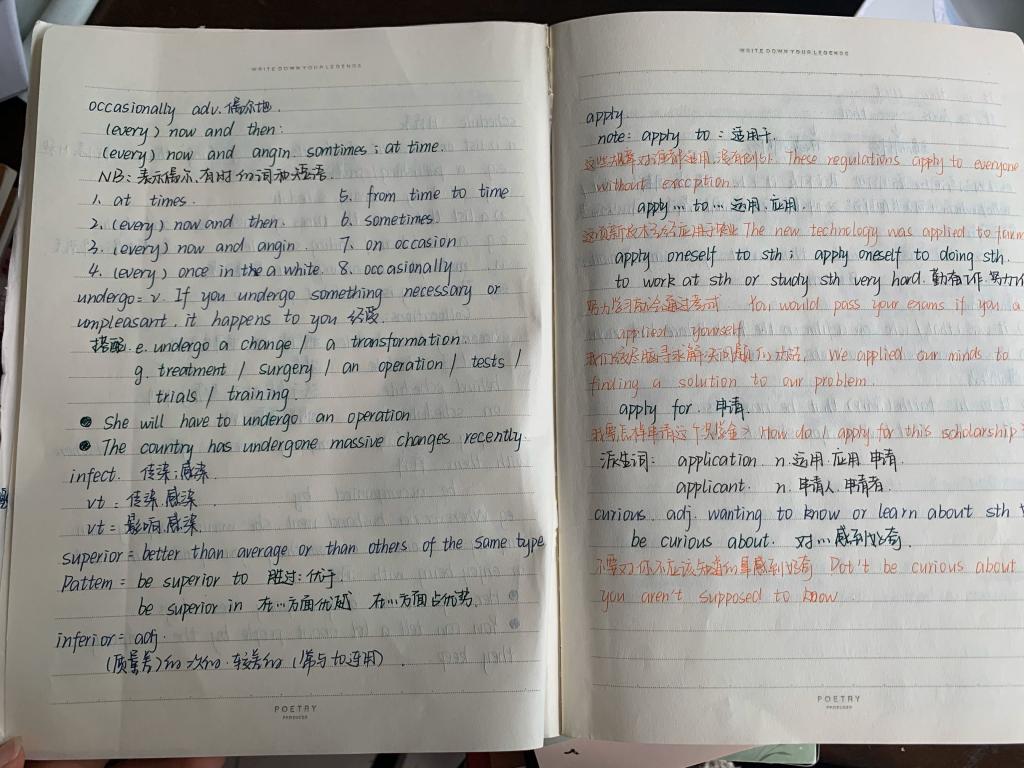 WRITE DOWN YOUR LEGENDS
occasionally adv. 偶尔地.
(every) now and then:
(every) now and angin. somtimes; at time.
NB: 表示偶尔.有时的词和短语.
1. at times.
2. (every) now and then.
3. (every) now and angin
4. (every) once in the a white.
5. from time to time
6. sometimes.
7. on occasion
8. occasionally
undergo: v. If you undergo something necessary or
umpleasant, it happens to you 经受.
搭配. e. undergo a change / a transformation
g. treatment / surgery / an operation / tests /
trials / training.
● She will have to undergo an operation
● The country has undergone massive changes recently.
infect. 传染;感染.
vt: 传染.感染
vt = 影响.感染
superior = better than average or than others of the same type
Pattem = be superior to 胜过;优于.
be superior in 在…方面优越 在…方面占优势.
inferior = adj.
(质量差)的 次的.较差的 (常与to连用).
POETRY
PRODUCER
WRITE DOWN YOUR LEGENDS
apply.
note: apply to: 适用于.
这些规章对 没有例外. These regulations apply to everyone
without exception.
apply… to… 运用.应用.
这项新技术已经应用于 The new technology was applied to farm
apply oneself to sth; apply oneself to doing sth.
to work at sth or study sth very hard. 勤奋工作.努力
努力学习 会通过考试 You would pass your exams if you a
applied yourself.
我们 寻求解决问题的 We applied our minds to
finding a solution to our problem.
apply for. 申请.
我要怎样申请这个奖学金? How do I apply for this scholarship?
派生词: application n. 运用.应用.申请.
applicant. n. 申请人.申请者.
curious. adj. wanting to know or learn about sth
be curious about. 对…感到好奇.
不要对你不应该知道的事感到好奇 Dot't be curious about
you aren't supposed to know.
POETRY
PRODUCER